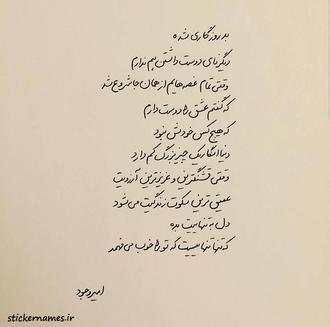 بد روزگاری شده
دیگر نای دوست داشتن هم ندارم
وقتی تمام غصه‌هایم از همان جا شروع شد
که گفتم عشق را دوست دارم
که هیچ کس خودش نبود
دنیا انگار یک چیز بزرگ کم دارد
وقتی قشنگترین و عزیزترین آرزویت
عمیق ترین سکوت زندگیت می شود
دل به تنهاییت بده
که تنها تنهاییست که تو را خوب می فهمد
امیر وجود
stickernames.ir